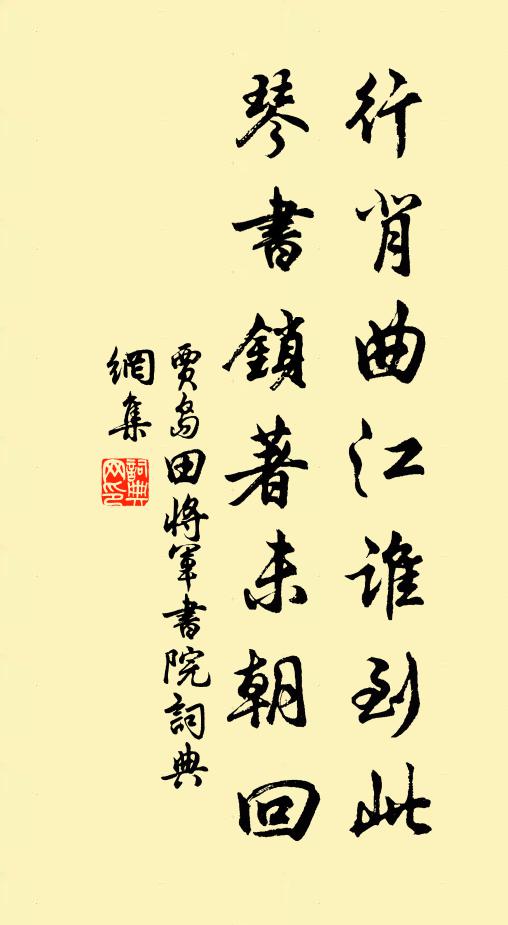 行背曲江誰到此
琴書鎖著未朝回
賈島田將軍書院詞典
網集
詞典
网印